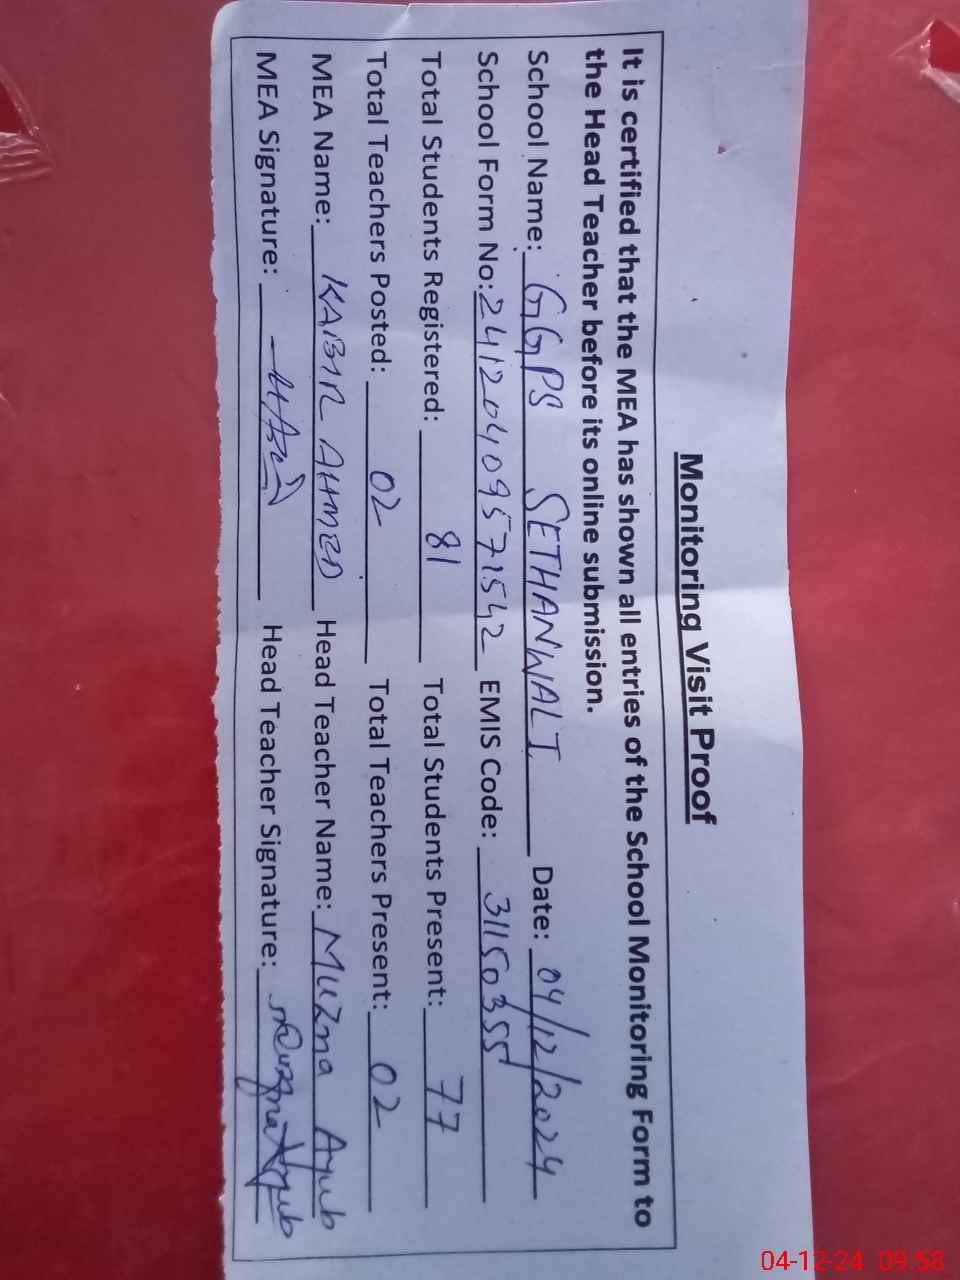 Monitoring Visit Proof
It is certified that the MEA has shown all entries of the School Monitoring Form to
the Head Teacher before its online submission.
School Name: GGPS SETHANWALI Date: 04/12/2024
School Form No: 24120409571542 EMIS Code: 31150355
Total Students Registered: 81 Total Students Present: 77
Total Teachers Posted: 02 Total Teachers Present: 02
MEA Name: KABIR AHMED Head Teacher Name: Muzna Ayub
MEA Signature: Head Teacher Signature: Muzna Ayub
04-12-24 09:58